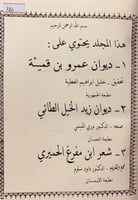 بسم الله الرحمن الرحيم
هذا المجلد يحتوي على :
١ - ديوان عمرو بن قميئة
تحقيق : خليل ابراهيم العطية
مطبعة الجمهورية
٢ - ديوان زيد الخيل الطائي
صنعة : الدكتور نوري القيسي
مطبعة النعمان
٣ - شعر ابن مفرغ الحميري
الدكتور : داود سلوم
مطبعة الايمان